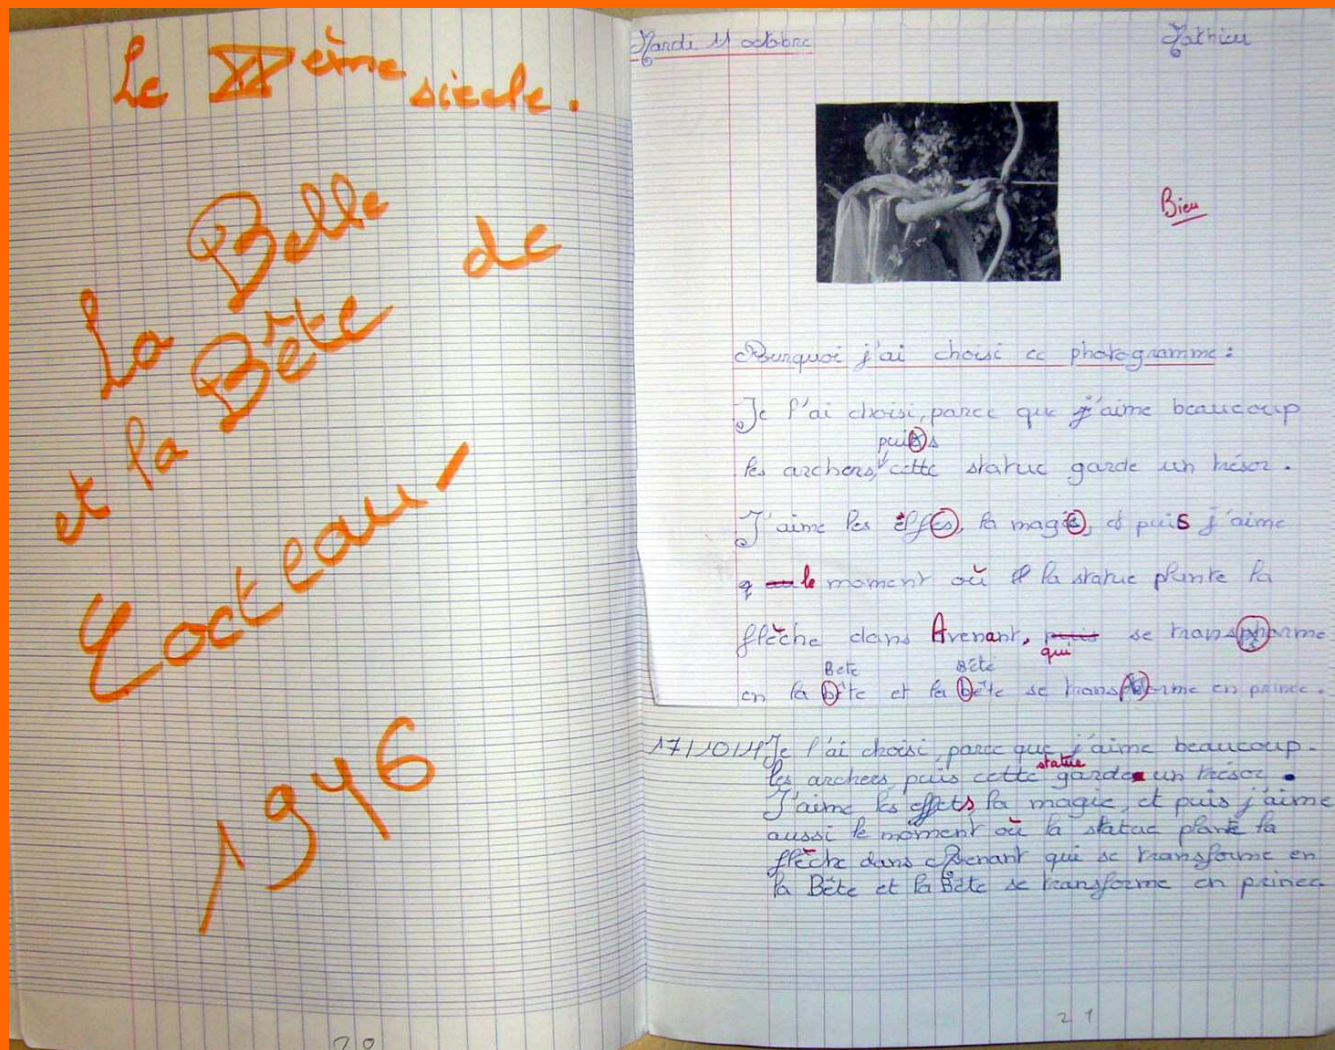 Le XXème siecle.
La Belle
et la Bête de
Cocteau
1946
20
Mardi 11 octobre
Mathieu
Bien
Pourquoi j'ai choisi ce photogramme :
Je l'ai choisi, parce que j'aime beaucoup
puis
les archers, cette statue garde un trésor.
J'aime les effes, la magie, et puis j'aime
le moment où la statue plante la
flèche dans Avenant, puis se transpharme
qui
Bete Bête
en la bête et la bête se transforme en prince.
Je l'ai choisi, parce que j'aime beaucoup.
statue
les archers, puis cette garde un trésor.
J'aime les effets, la magie, et puis j'aime
aussi le moment où la statue plante la
flèche dans Avenant qui se transforme en
la Bête et la Bête se transforme en prince
21